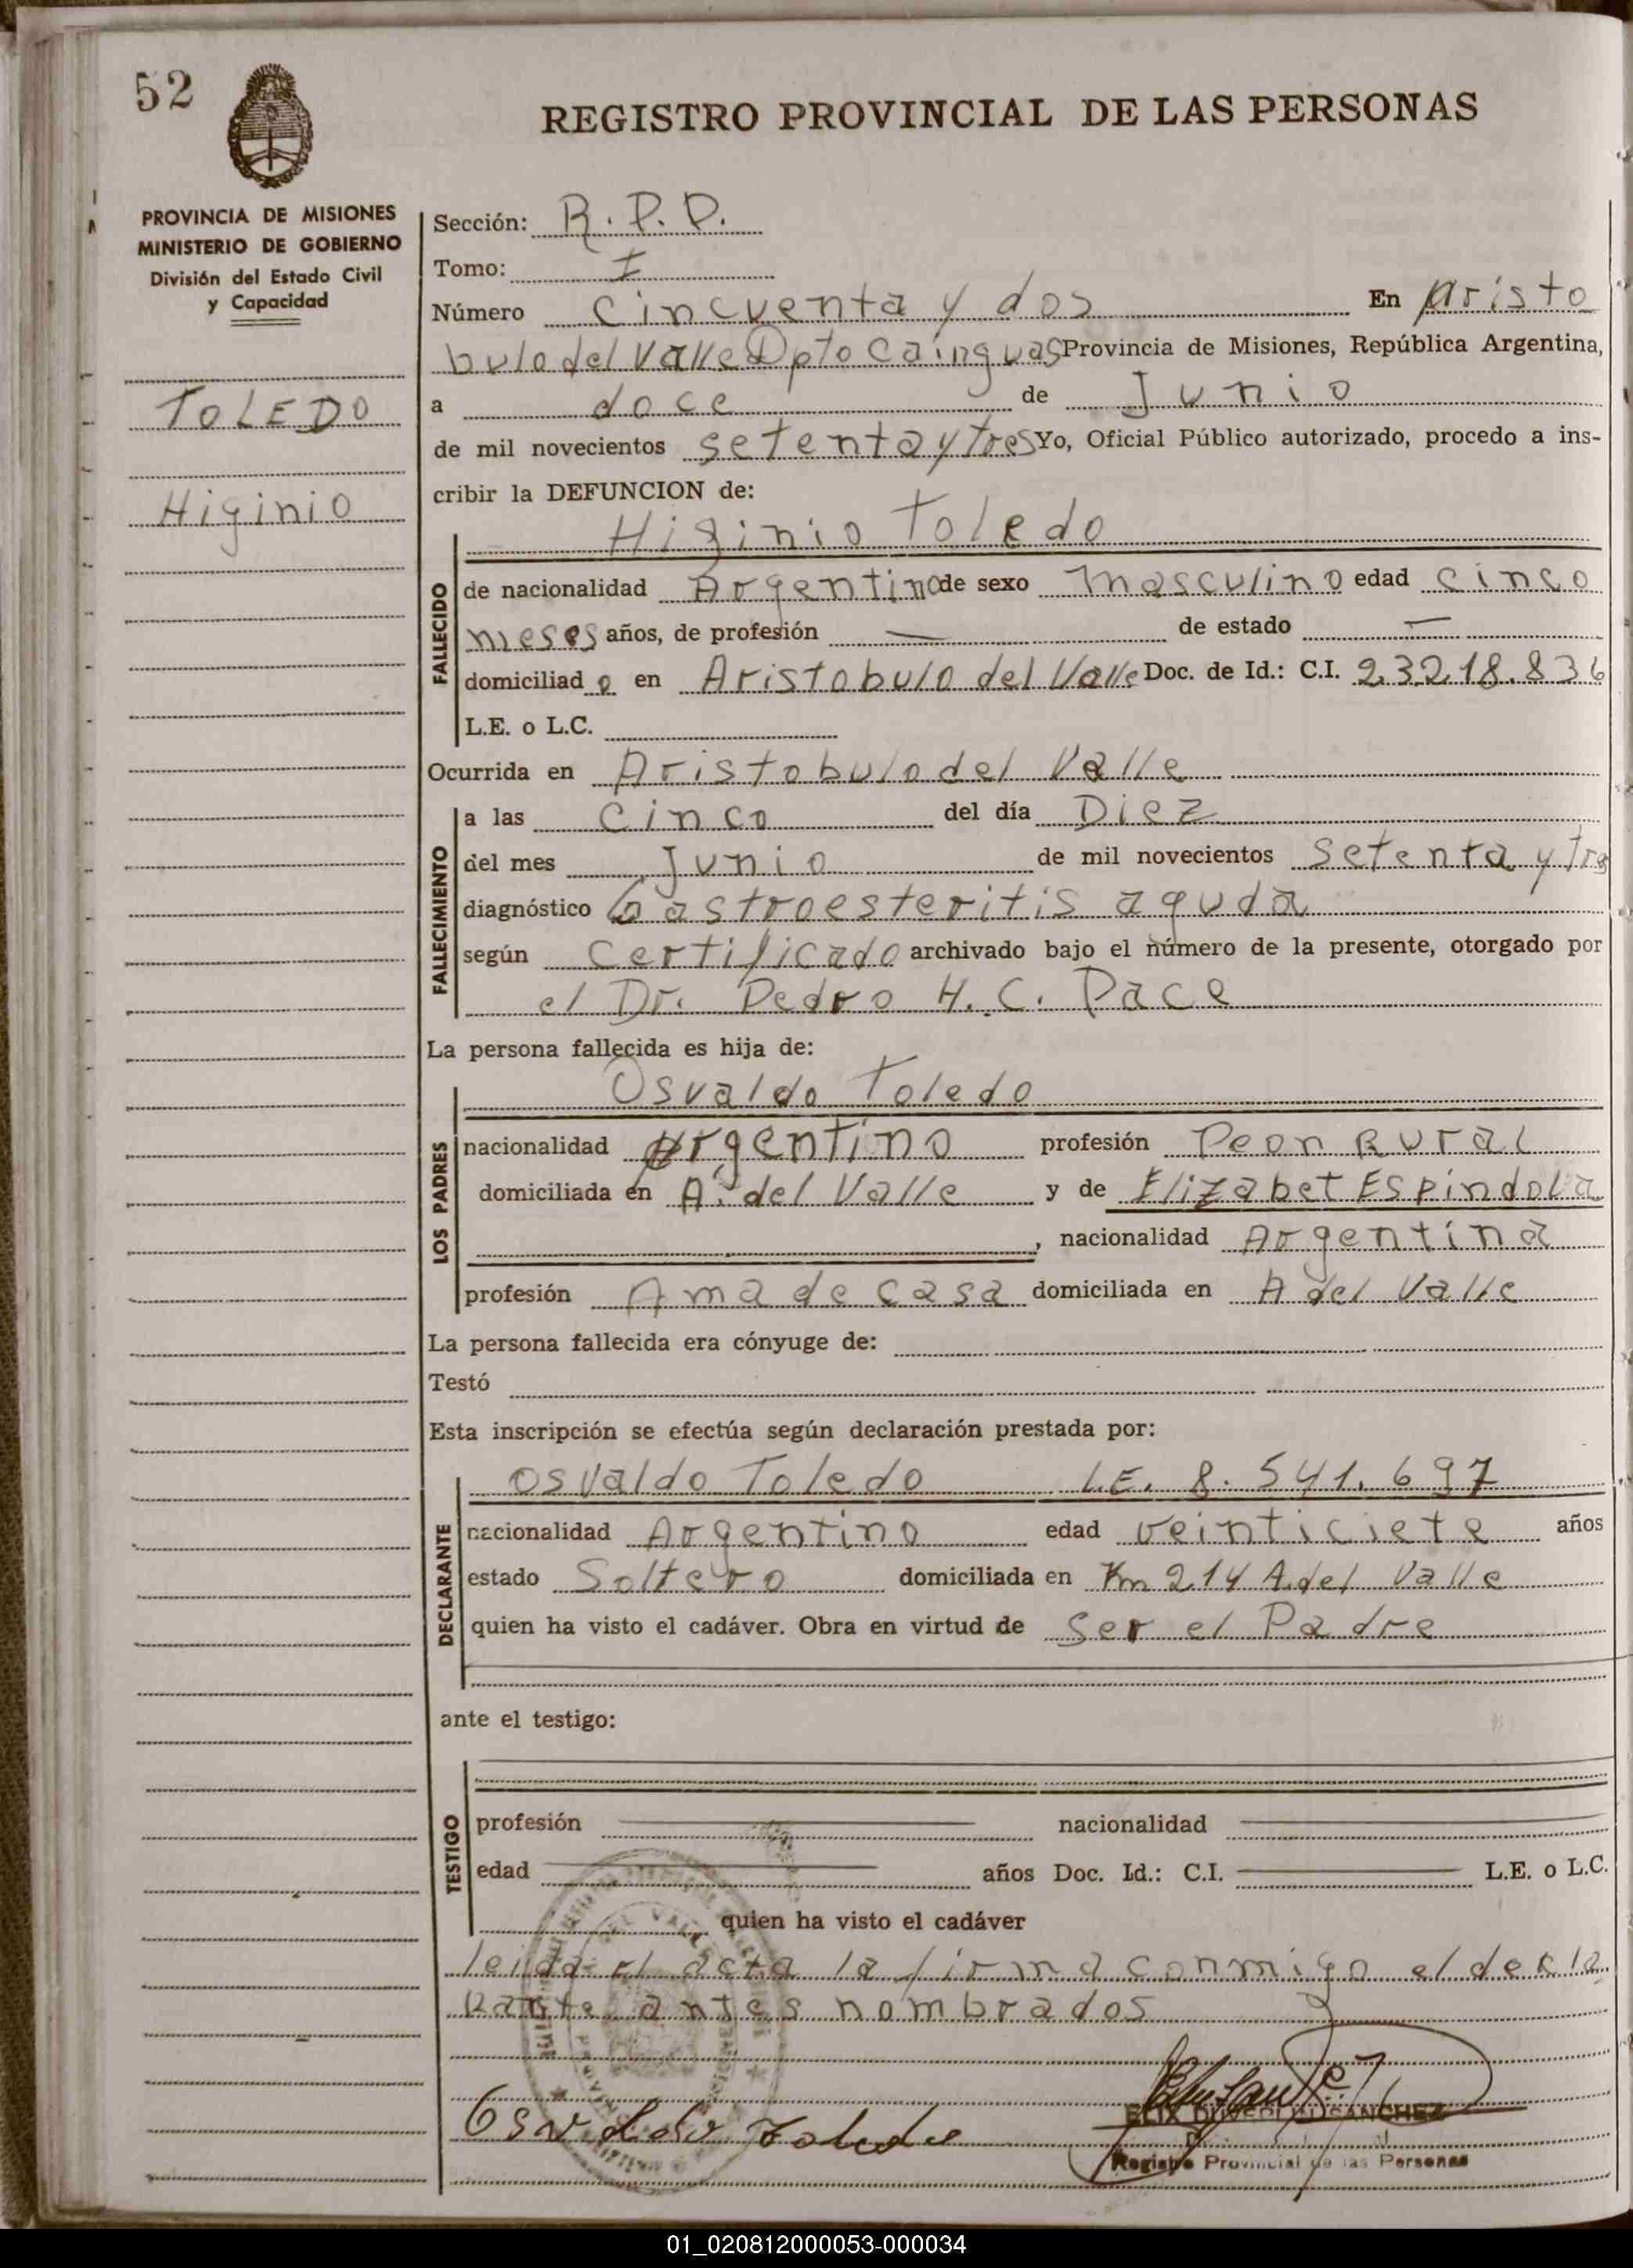 52
REGISTRO PROVINCIAL DE LAS PERSONAS
PROVINCIA DE MISIONES
MINISTERIO DE GOBIERNO
División del Estado Civil
y Capacidad
TOLEDO
Higinio
Sección: R.P.D.
Tomo: I
Número cincuenta y dos En Aristo
bulo del Valle Dpto Cainguas Provincia de Misiones, República Argentina,
a doce de Junio
de mil novecientos setenta y tres Yo, Oficial Público autorizado, procedo a ins-
cribir la DEFUNCION de:
Higinio Toledo
FALLECIDO
de nacionalidad Argentino de sexo Masculino edad cinco
meses años, de profesión — de estado —
domiciliad o en Aristobulo del Valle Doc. de Id.: C.I. 23218.836
L.E. o L.C.
Ocurrida en Aristobulo del Valle
FALLECIMIENTO
a las cinco del día Diez
del mes Junio de mil novecientos setenta y tres
diagnóstico Gastroesteritis aguda
según certificado archivado bajo el número de la presente, otorgado por
el Dr. Pedro H. C. Pace
La persona fallecida es hija de:
Osvaldo Toledo
LOS PADRES
nacionalidad Argentino profesión Peon Rural
domiciliada en A. del Valle y de Elizabet Espindola
, nacionalidad Argentina
profesión Ama de casa domiciliada en A del Valle
La persona fallecida era cónyuge de:
Testó
Esta inscripción se efectúa según declaración prestada por:
DECLARANTE
Osvaldo Toledo L.E. 8.541.697
nacionalidad Argentino edad veinticiete años
estado Soltero domiciliada en Km 214 A. del Valle
quien ha visto el cadáver. Obra en virtud de ser el Padre
ante el testigo:
TESTIGO
profesión nacionalidad
edad años Doc. Id.: C.I. L.E. o L.C.
quien ha visto el cadáver
leida El acta la firma conmigo el decla
rante antes nombrados
Osvaldo Toledo
SANCHEZ
Registro Provincial de las Personas
01_020812000053-000034